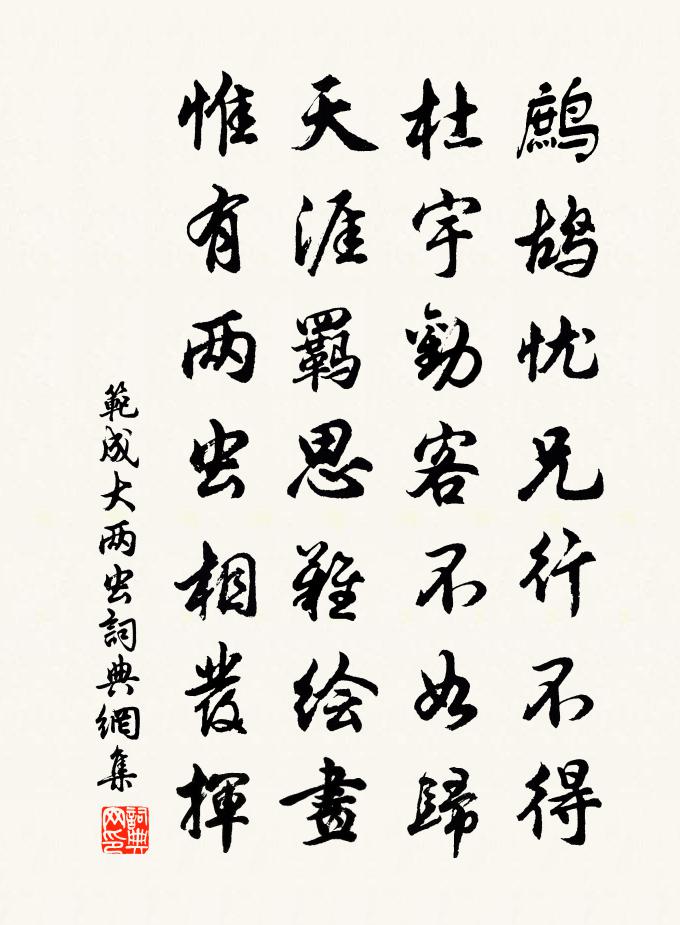 鷓鴣忧兄行不得
杜宇勸客不如歸
天涯羈思難绘畫
惟有两虫相發揮
範成大两虫詞典網集
詞典网印